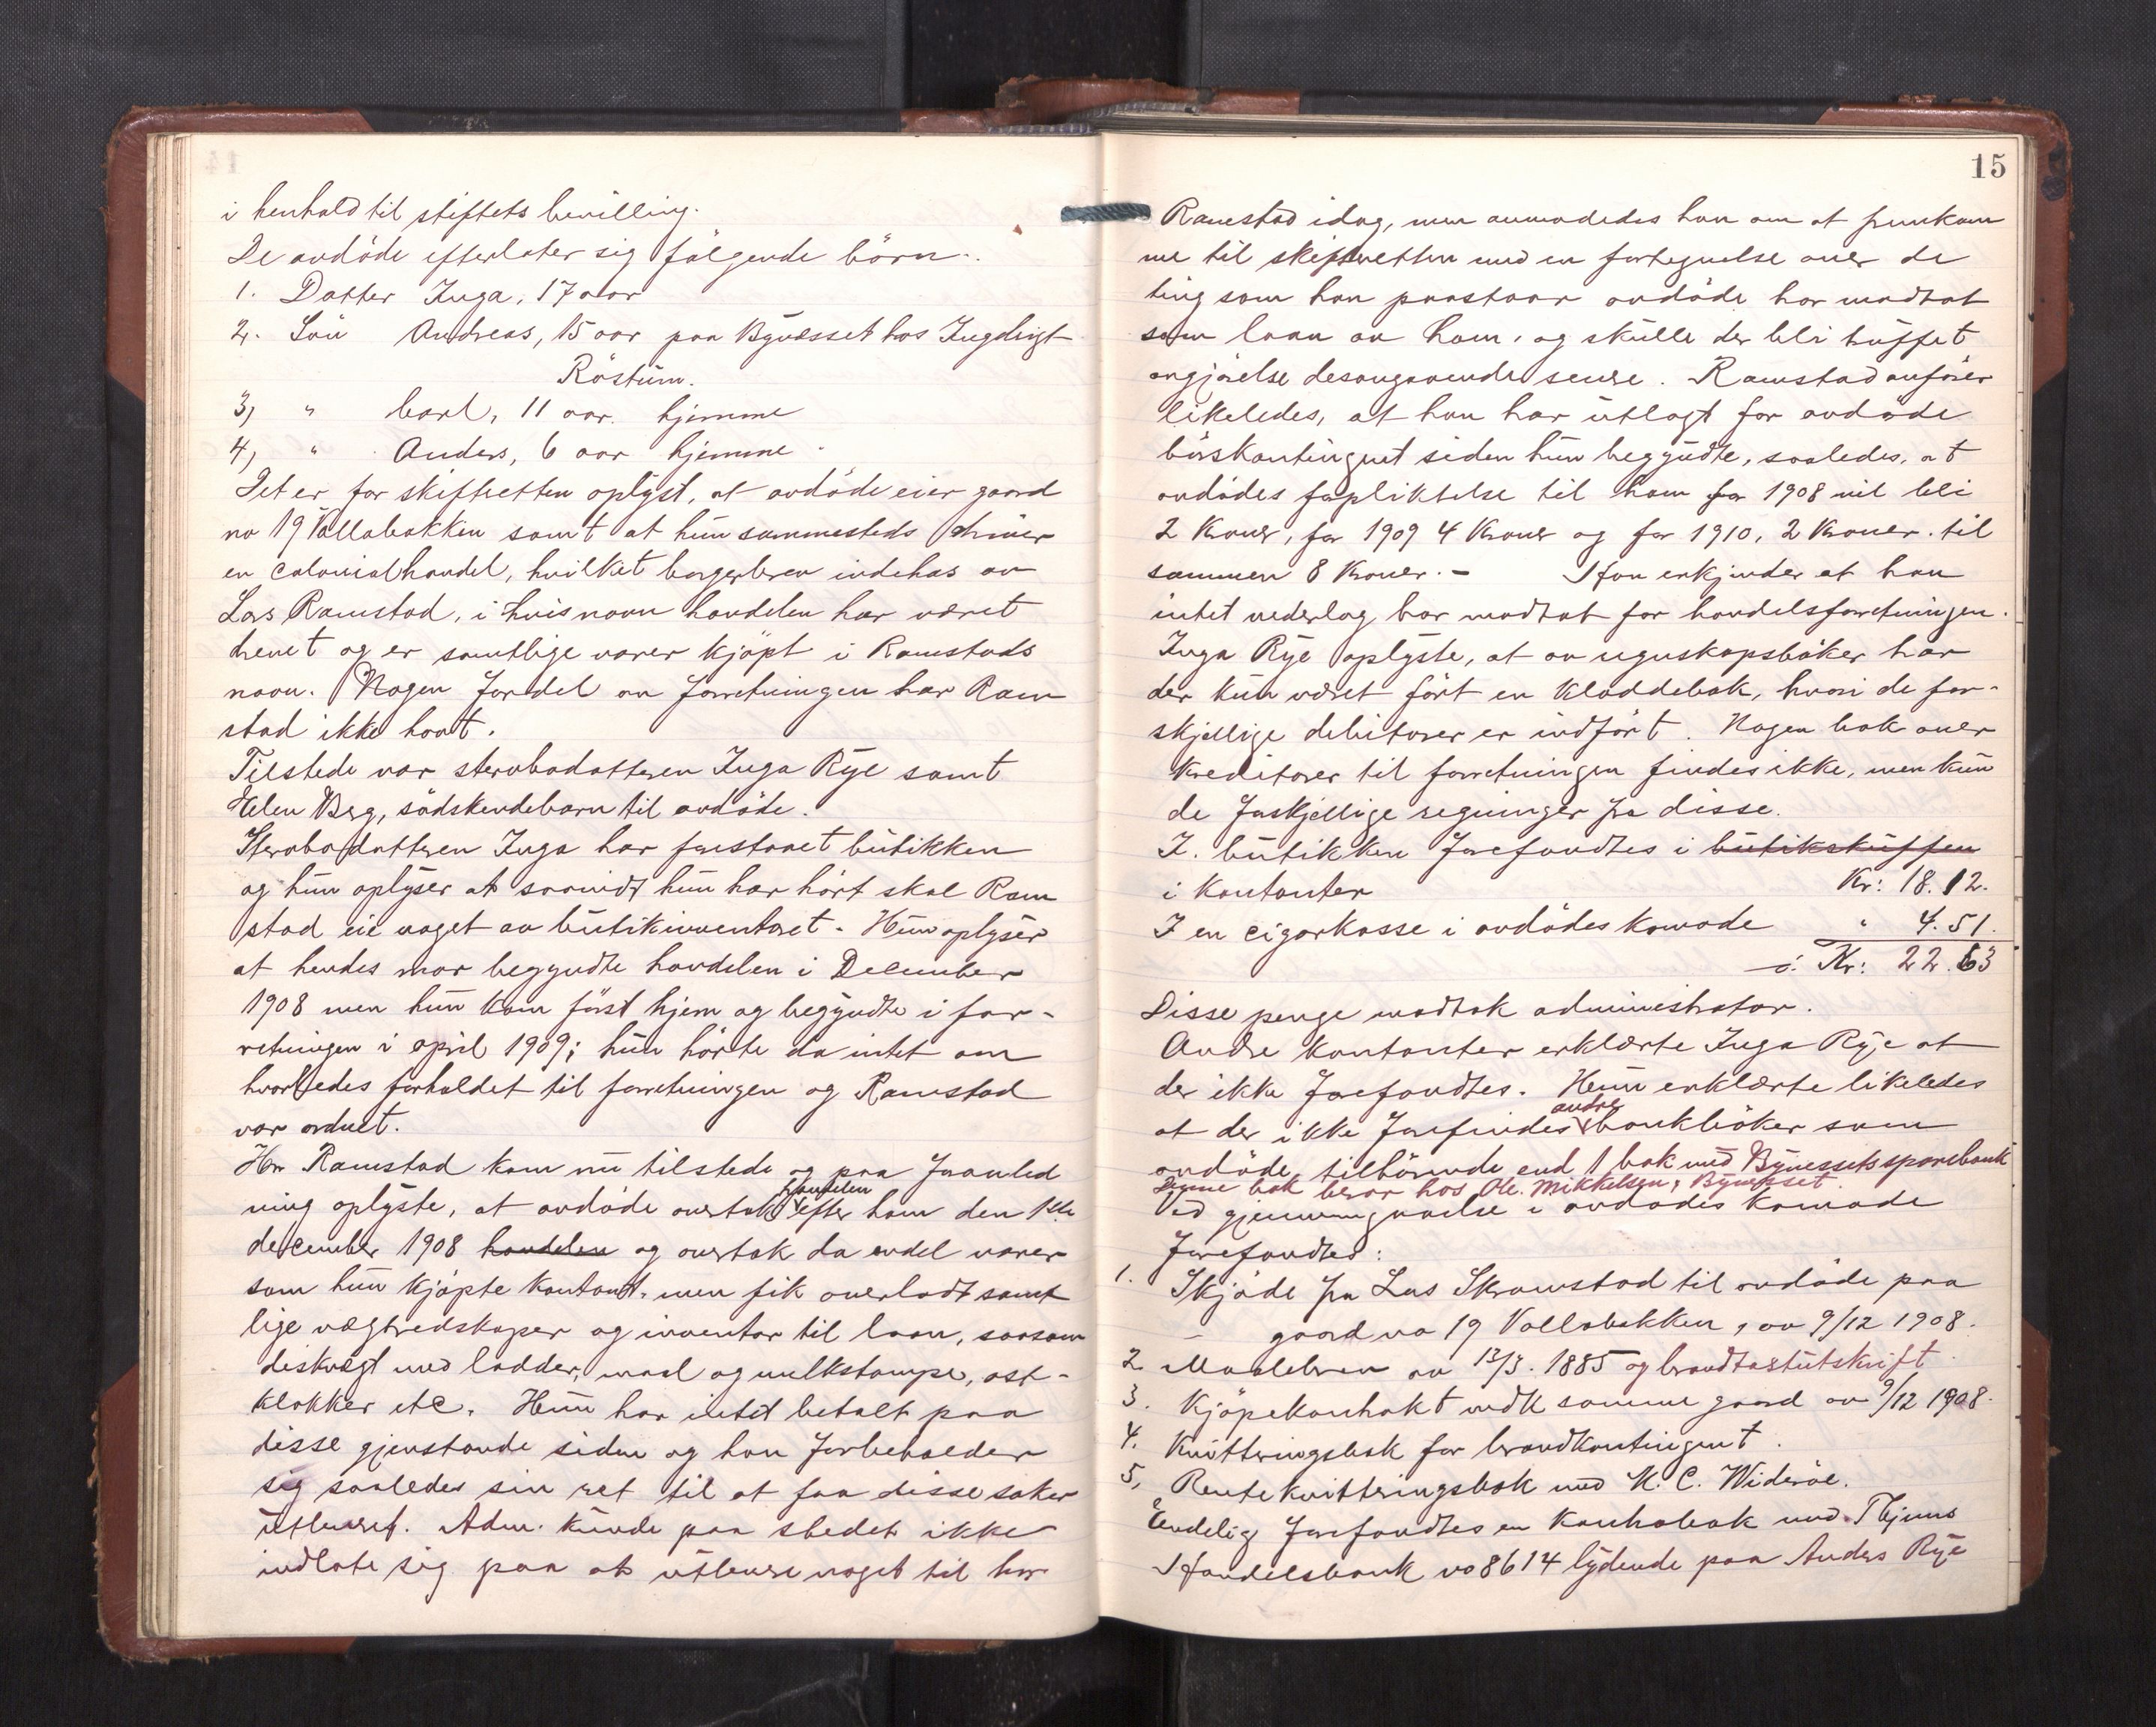 i henhold til stiftets bevilling.
De avdöde efterlater sig fölgende börn.
1. Datter Inga, 17 aar
2. Sön Andreas, 15 aar paa Bynesset hos Ingebrigt
Röstum.
3, " Carl, 11 aar. hjemme
4, " Anders, 6 aar hjemme.
Det er for skifteretten oplyst, at avdöde eier gaard
no 19 Vollabakken samt at hun sammesteds driver
en colonialhandel, hvilket borgerbrev indehas av
Lars Ramstad, i hvis navn handelen har været
drevet og er samtlige varer kjöpt i Ramstads
navn. Nogen fordel av forretningen har Ram
stad ikke havt.
Tilstede var stervbodatteren Inga Rye samt
Elen Berg, södskendebarn til avdöde.
Stervbodatteren Inga har forstaaet butikken
og hun oplyser at saavidt hun har hört skal Ram
stad eie noget av butikinventaret. Hun oplyser
at hendes mor begyndte handelen i December
1908 men hun kom först hjem og begyndte i for-
retningen i april 1909; hun hörte da intet om
hvorledes forholdet til forretningen og Ramstad
var ordnet.
Hr Ramstad kom nu tilstede og paa foranled
ning oplyste, at avdöde overtok handelen efter ham den 1ste
december 1908 handelen og overtok da endel varer
som hun kjöpte kontant, men fik overladt samt
lige vægtredskaper og inventar til laan, saasom
diskvegt med lodder, maal og melkstampe, ost-
klokker etc. Hun har intet betalt paa
disse gjenstande siden og han forbeholder
sig saaledes sin ret til at faa disse saker
utleveret. Adm. kunde paa stedet ikke
indlate sig paa at utlevere noget til hr
15
Ramstad idag, men anmodedes han om at fremkom
me til skifteretten med en fortegnelse over de
ting som han paastaar avdöde har modtat
som laan av ham, og skulle der bli truffet
avgjörelse desangaaende senere. Ramstad anförer
likeledes, at han har utlagt for avdöde
börskontingent siden hun begyndte, saaledes, at
avdödes forpliktelse til ham for 1908 vil bli
2 Kroner, for 1909 4 Kroner og for 1910, 2 Kroner. til
sammen 8 Kroner. - Han erkjender at han
intet vederlag har modtat for handelsforretningen.
Inga Rye oplyste, at av regnskapsböker har
der kun været fört en kladdebok, hvori de for-
skjellige debitorer er indfört. Nogen bok over
kreditorer til forretningen findes ikke, men kun
de forskjellige regninger fra disse.
I butikken forefandtes i butikskuffen
i kontanter Kr: 18.12.
I en cigarkasse i avdödes komode " 4.51.
Kr: 22.63
Disse penge modtok administrator.
Andre kontanter erklærte Inga Rye at
der ikke forefandtes. Hun erklærte likeledes
at der ikke forefindes andre bankböker som
avdöde tilhörende end 1 bok med Bynessets sparebank
Denne bok beror hos Ole Mikkelsen, Bynesset.
Ved gjennemgaaelse i avdödes komode
forefandtes:
1. Skjöde fra Lars Skramstad til avdöde paa
gaard no 19 Vollabakken, av 9/12 1908.
2. Maalebrev av 13/3. 1885 og brandtakstutskrift
3. Kjöpekontrakt vedk samme gaard av 9/12 1908.
4. Kvitteringsbok for brandkontingent.
5, Rentekvitteringsbok med K. C. Wideröe.
Endelig forefandtes en kontrabok med Thjems
Handelsbank no 8614 lydende paa Anders Rye